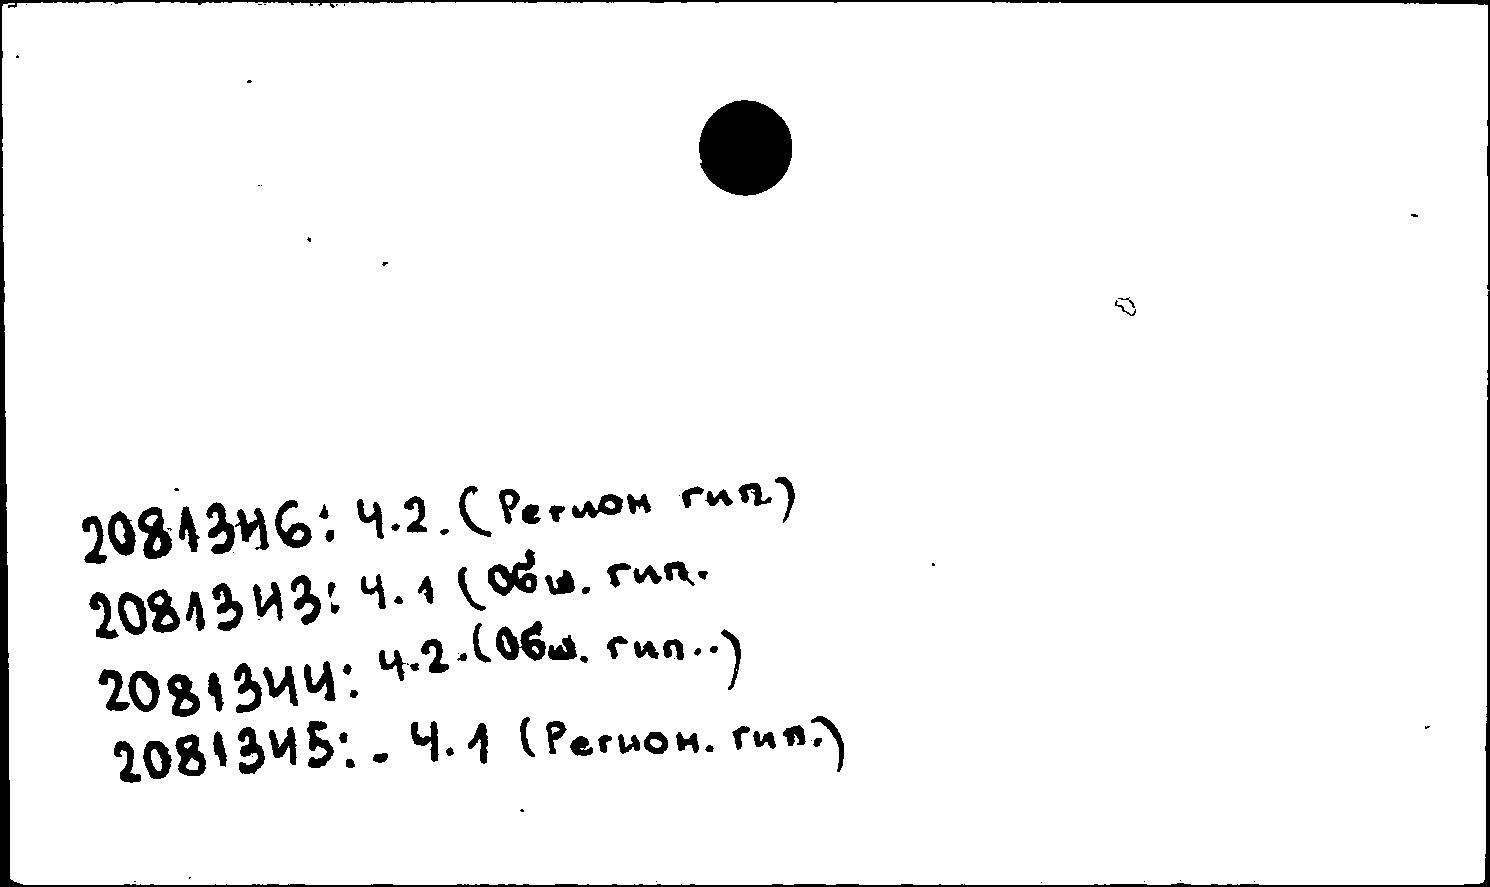 2081346: Ч.2. (Регион гип.)
2081343: Ч.1 (Общ. гип.
2081344: Ч.2. (Общ. гип..)
2081345: - Ч.1 (Регион. гип.)